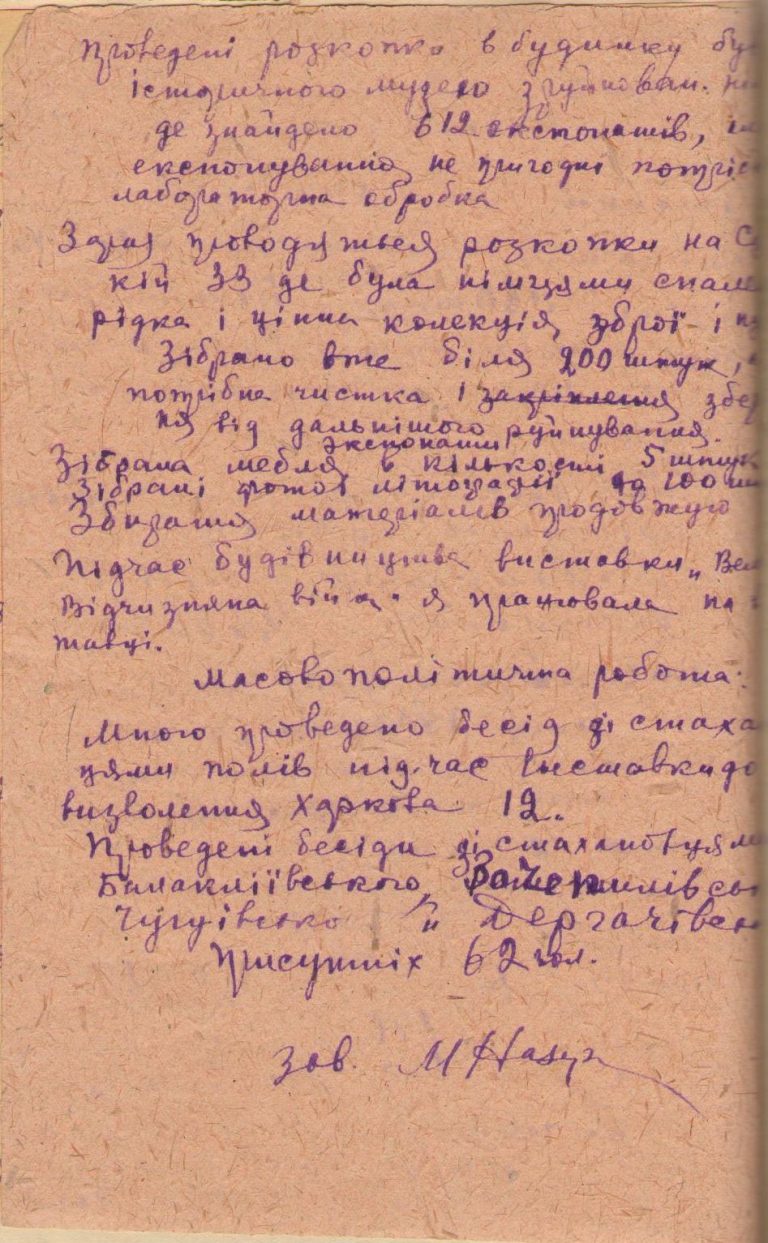 Проведені розкопки в будинку бу
історичного музею зруйнован.
де знайдено 612 експонатів,
експонування не пригодні потріб
лабораторна обробка
Зараз проводяться розкопки на С
кій 33 де була німцями спале
рідка і цінна колекція зброї і
Зібрано вже біля 200 штук,
потрібна чистка і закріплення збе
ня від дальнішого руйнування.
експонати
Зібрана мебля в кількості 5 штук
Зібрані фотої літографії до 100
Збирання матеріалів продовжую
Підчас будівництва виставки „Вел
Відчизняна війна" я працювала на
тавці.
Масовополітична робота:
Мною проведено бесід зі стаха
цями полів підчас виставки до
визволення Харкова 12.
Проведені бесіди зі стахановцями
Балакліївського, Зачепилівсь
Чугуївсько " Дергачівсь
Присутніх 62 чол.
Зав. М